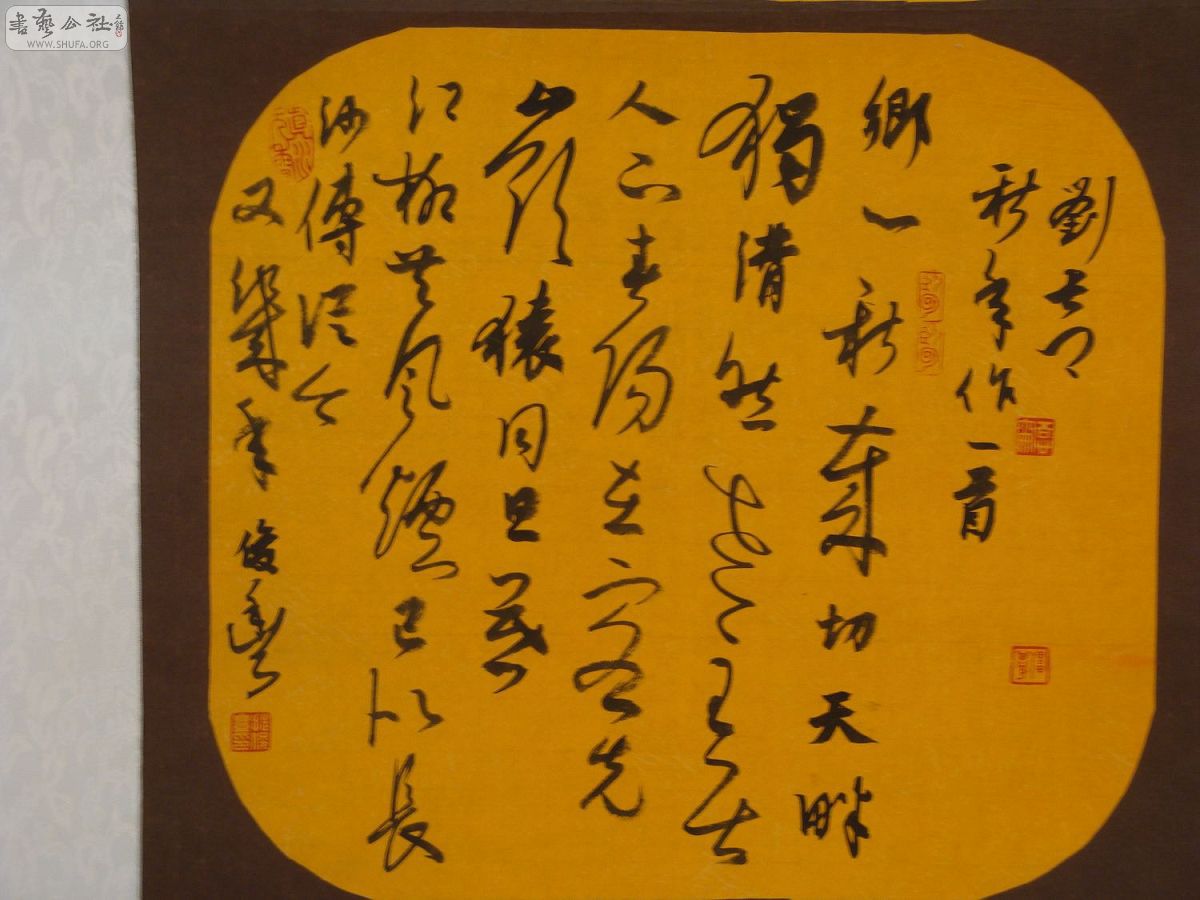 書藝公社
WWW.SHUFA.ORG
劉長卿
新年作一首
鄉心新歲切天畔
獨潸然老至居
人下春歸在客先
嶺猿同旦暮
江柳共風煙已似長
沙傅從今
又幾年 俊